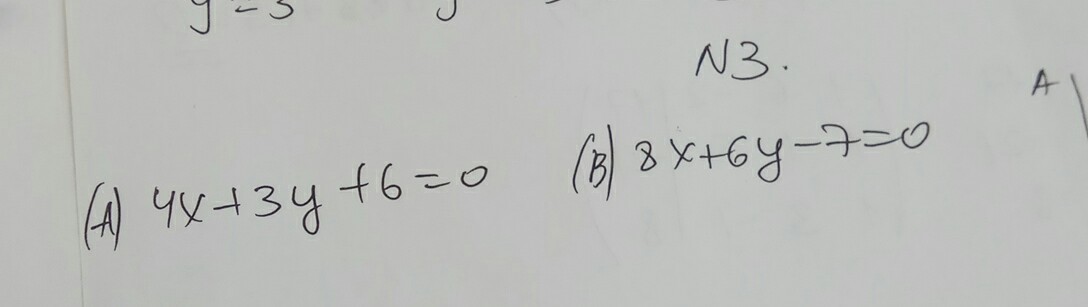 y=3
N3.
A
(A) 4x+3y+6=0 (B) 8x+6y-7=0